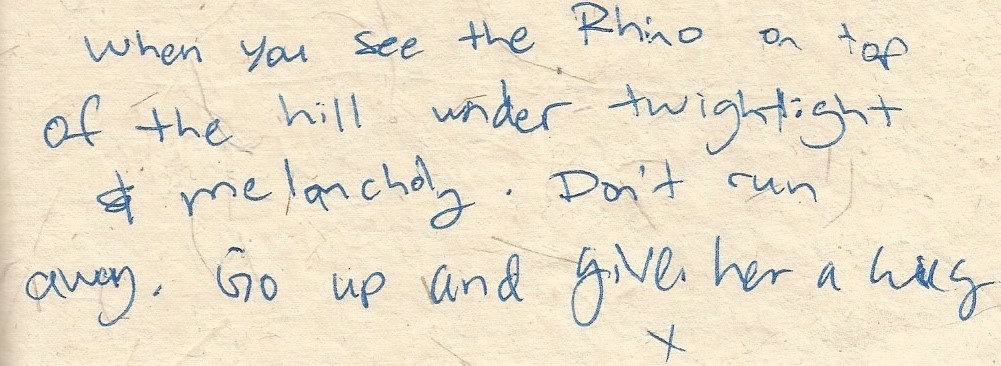 When you see the Rhino on top
of the hill under twightlight
& melancholy. Don't run
away. Go up and give her a hug
x